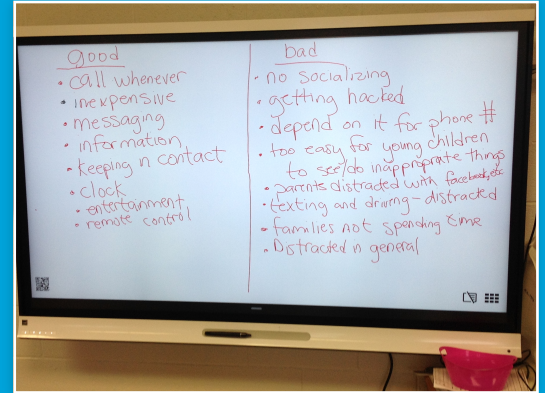 good
• call whenever
• inexpensive
• messaging
• information
• keeping in contact
• clock
• entertainment
• remote control
bad
• no socializing
• getting hacked
• depend on it for phone #
• too easy for young children
to see/do inapproprate things
• parents distracted with facebook, etc
• texting and driving - distracted
• families not spending time
• Distracted in general